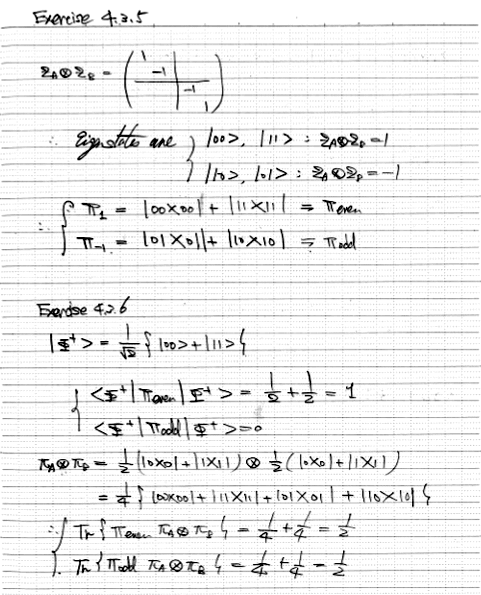 Exercise 4.2.5
Z_A⊗Z_B = ( 1 -1 -1 1 )
∴ Eigenstates are { |00>, |11> : Z_A⊗Z_B=1
|10>, |01> : Z_A⊗Z_B=-1
∴ { Π_1 = |00X00| + |11X11| ≡ Π_even
Π_-1 = |01X01| + |10X10| ≡ Π_odd
Exercise 4.2.6
|Φ⁺> = 1/√2 { |00> + |11> }
{ <Φ⁺|Π_even|Φ⁺> = 1/2 + 1/2 = 1
<Φ⁺|Π_odd|Φ⁺> = 0
π_A⊗π_B = 1/2 (|0X0| + |1X1|) ⊗ 1/2 (|0X0| + |1X1|)
= 1/4 { |00X00| + |11X11| + |01X01| + |10X10| }
∴ { Tr { Π_even π_A⊗π_B } = 1/4 + 1/4 = 1/2
Tr { Π_odd π_A⊗π_B } = 1/4 + 1/4 = 1/2